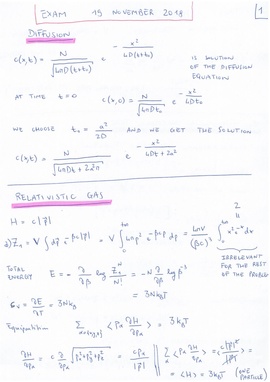 EXAM 15 NOVEMBER 2018 1
DIFFUSION
c(x,t) = N / √(4πD(t+t₀)) e^(-x²/(4D(t+t₀))) IS SOLUTION OF THE DIFFUSION EQUATION
AT TIME t=0 c(x,0) = N / √(4πDt₀) e^(-x²/(4Dt₀))
WE CHOOSE t₀ = a²/2D AND WE GET THE SOLUTION
c(x,t) = N / √(4πDt + 2πa²) e^(-x²/(4Dt + 2a²))
RELATIVISTIC GAS
H = c|p|
Z₁ = V ∫ dp e^(-βc|p|) = V ∫₀^(+∞) 4πp² e^(-βcp) dp = 4πV/(βc)³ ∫₀^(+∞) x² e^(-x) dx
2
IRRELEVANT FOR THE REST OF THE PROBLEM
TOTAL ENERGY E = -∂/∂β log Z₁^N/N! = -N ∂/∂β log β⁻³
= 3NkBT
= ∂E/∂T = 3NkB
Equipartition Σ ⟨pα ∂H/∂pα⟩ = 3kBT
∂H/∂pα = c ∂/∂pα √(px²+py²+pz²) = c pα/|p| Σ ⟨pα ∂H/∂pα⟩ = ⟨c|p|²/|p|⟩
= ⟨H⟩ = 3kBT (ONE PARTICLE)